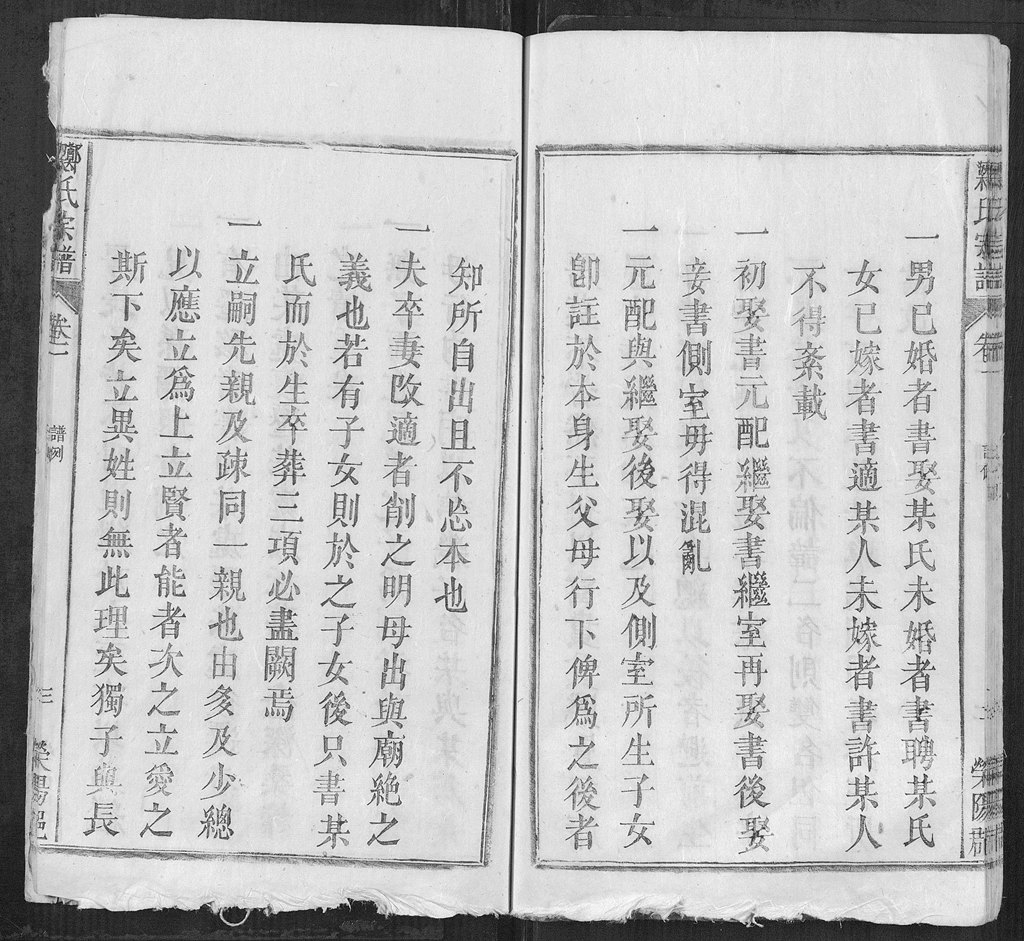 氏宗譜
卷一
一男已婚者書娶某氏未婚者書聘某氏
女已嫁者書適某人未嫁者書許某人
不得紊載
一初娶書元配繼娶書繼室再娶書後娶
妾書側室毋得混亂
一元配與繼娶後娶以及側室所生子女
卽註於本身生父母行下俾爲之後者
知所自出且不忘本也
一夫卒妻改適者削之明母出與廟絶之
義也若有子女則於之子女後只書某
氏而於生卒葬三項必盡闕焉
一立嗣先親及疎同一親也由多及少總
以應立爲上立賢者能者次之立愛之
斯下矣立異姓則無此理矣獨子與長
鄭氏宗譜
卷一
譜例
三